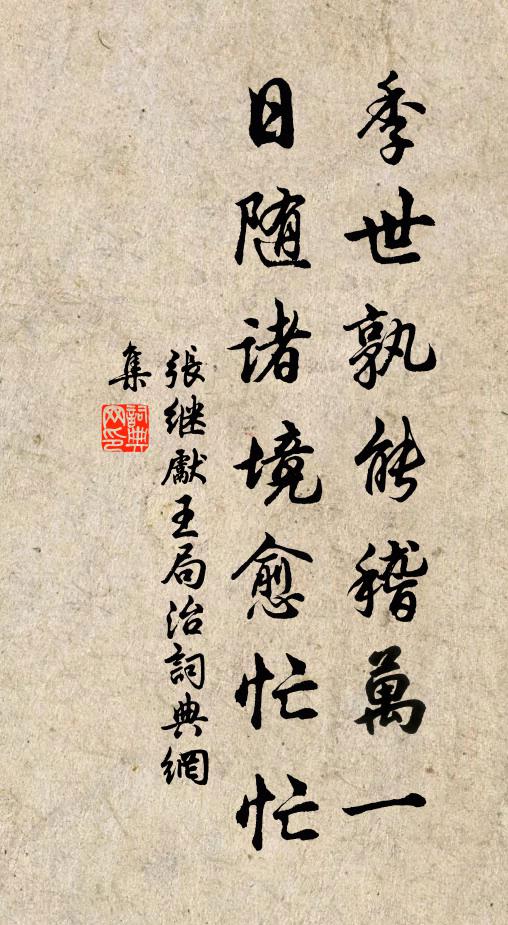 季世孰能稽萬一
日随诸境愈忙忙
張继獻王局治詞典網
集
詞典
网印